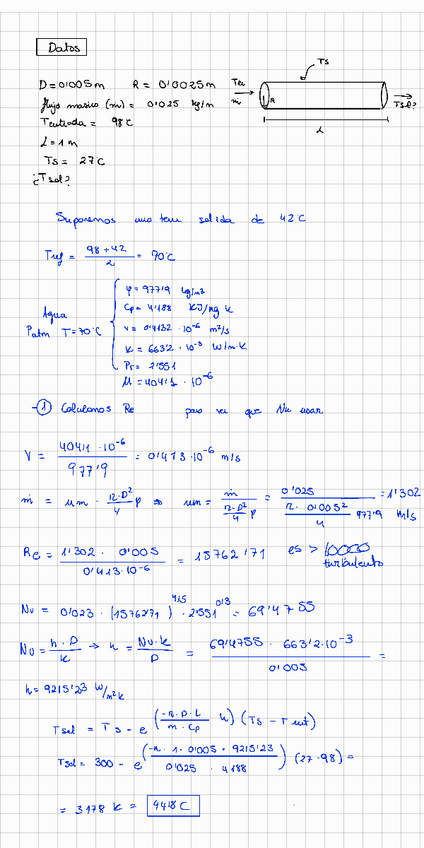 Datos
D = 0'005 m R = 0'0025 m
flujo masico (m) = 0'025 kg/m
Tentrada = 98 C
L = 1 m
Ts = 27 C
¿Tsal?
Ts
Tent
ṁ
R
Tsal?
L
Suponemos una tem salida de 42 C
Tref = (98 + 42)/2 = 70°C
Agua
Patm T = 70°C
ρ = 977'9 kg/m3
Cp = 4'188 KJ/kg K
ν = 0'4132 · 10^-6 m²/s
K = 663'2 · 10^-3 W/m K
Pr = 2'551
μ = 404'1 · 10^-6
-① Calculamos Re para ver que Nu usar
V = (404'1 · 10^-6)/977'9 = 0'413 · 10^-6 m/s
ṁ = um · (π·D²/4) ρ ⇒ um = ṁ/((π·D²/4) ρ) = 0'025/((π·0'005²/4) 977'9) = 1'302 m/s
Re = (1'302 · 0'005)/(0'413·10^-6) = 15762'71 es > 10000
turbulento
Nu = 0'023 · (15762'71)^4/5 · 2'551^0'3 = 69'4755
Nu = h·D/K → h = Nu·k/D = (69'4755 · 663'2·10^-3)/0'005 =
h = 9215'23 W/m²K
Tsal = Ts - e^(-π·D·L/(m·Cp) h) (Ts - Tent)
Tsal = 300 - e^(-π·1·0'005 · 9215'23/(0'025 · 4188)) (27-98) =
= 317'8 K = 44'18 C